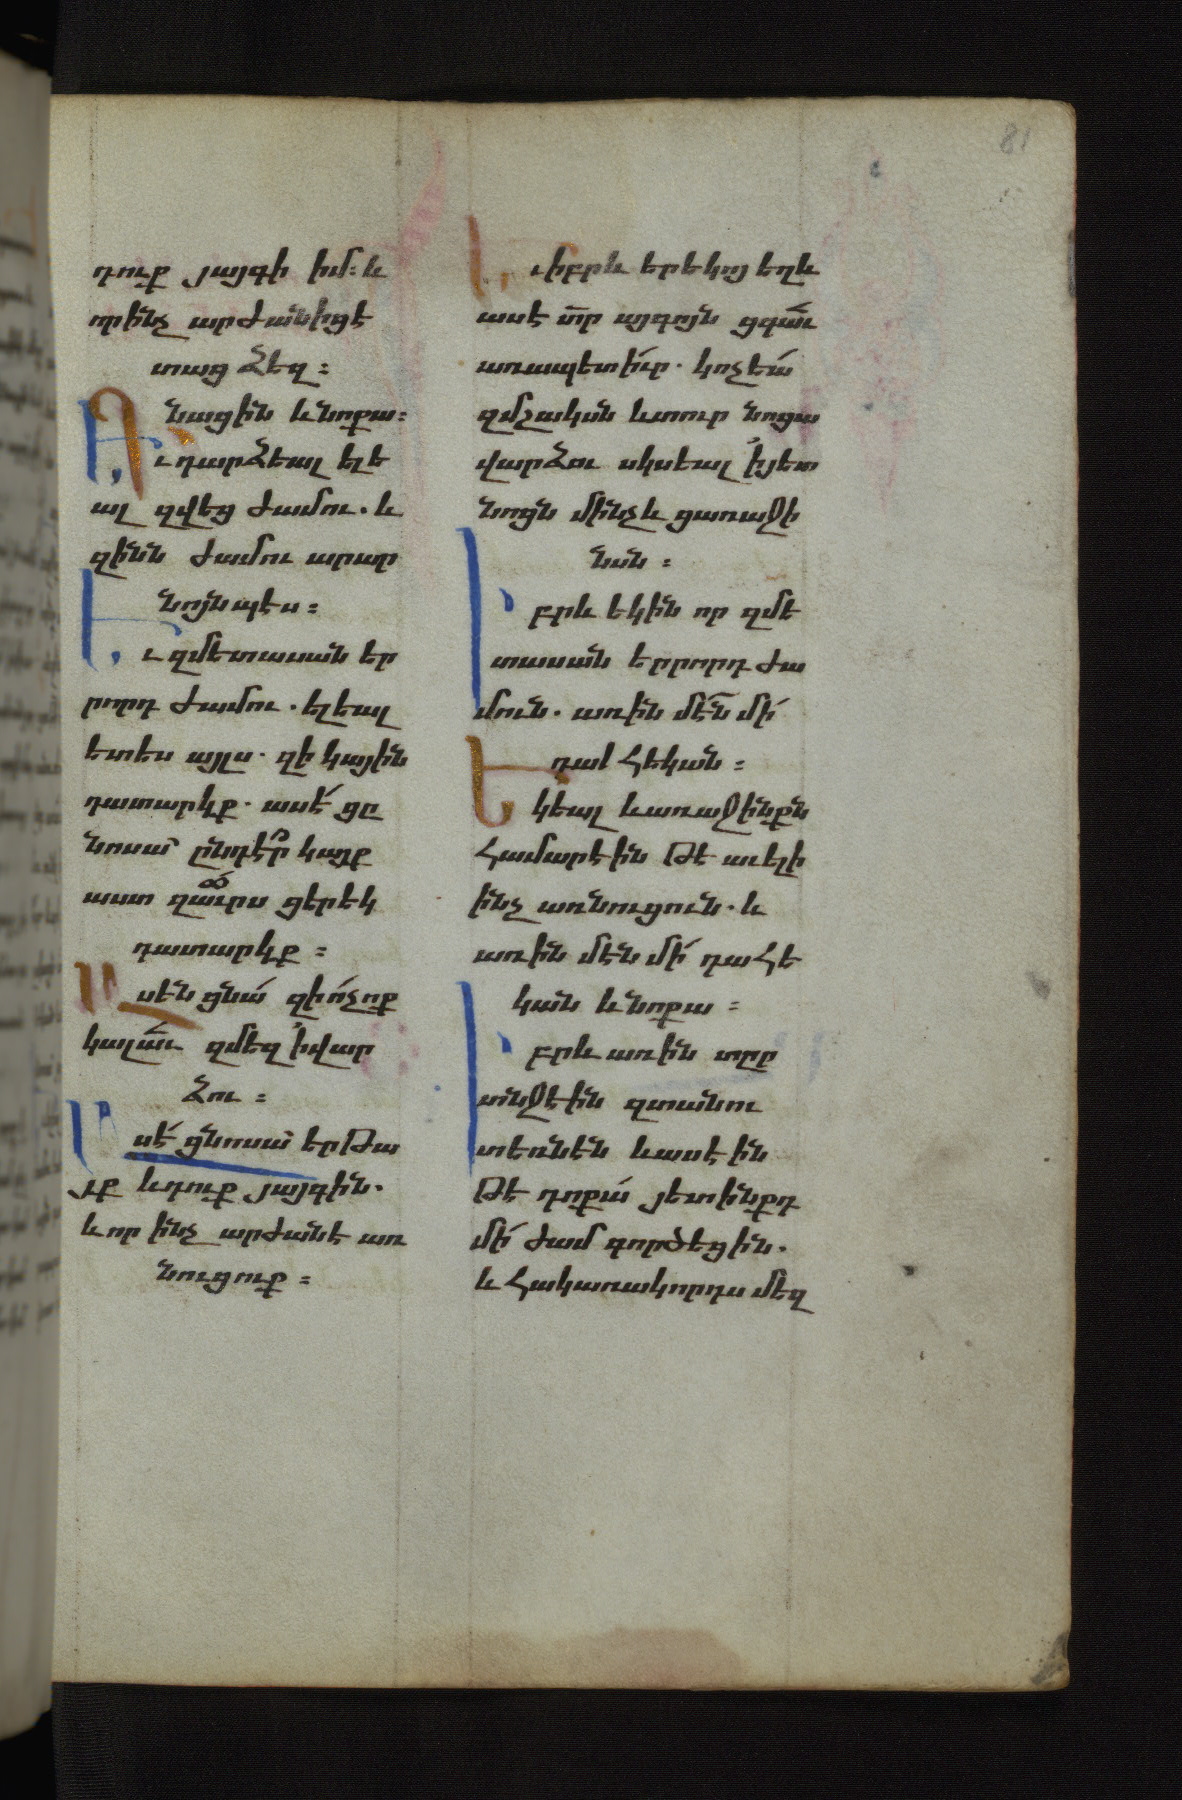 81
դուք յայգի իմ։ և
որինչ արժանիցէ
տաց ձեզ։
Գնացին և նոքա։
Եւ դարձեալ ելե
ալ զվեց ժամու. և
զինն ժամու արար
նոյնպէս։
Եւ զմետասան եր
րորդ ժամու. ելեալ
ետես այլս. զի կային
դատարկք. ասէ ցը
նոսա ընդէր կայք
աստ զաւուրս ցերեկ
դատարկք։
Ասեն ցնա զի ոչ ոք
կալաւ զմեզ ՛ի վար
ձու։
Ասէ ցնոսա երթա
յք և դուք յայգին.
և որ ինչ արժանէ առ
նուցուք։
Եւ իբրև երեկոյ եղև
ասէ տր այգոյն ցգաւ
առապետ իւր. կոչեա
զմշակսն և տուր նոցա
վարձու սկսեալ ՛ի յետ
նոցն մինչև ցառաջի
նսն։
Իբրև եկին որ զմե
տասան երրորդ ժա
մուն. առին մէն մի
դահեկան։
Եկեալ և առաջինքն
համարէին թէ աւելի
ինչ առնուցուն. և
առին մէն մի դահե
կան և նոքա։
Իբրև առին տըր
տնջէին զտանու
տեռնէն և ասէին
թէ դոքա յետինքդ
մի ժամ գործեցին.
և հակառակորդս մեզ